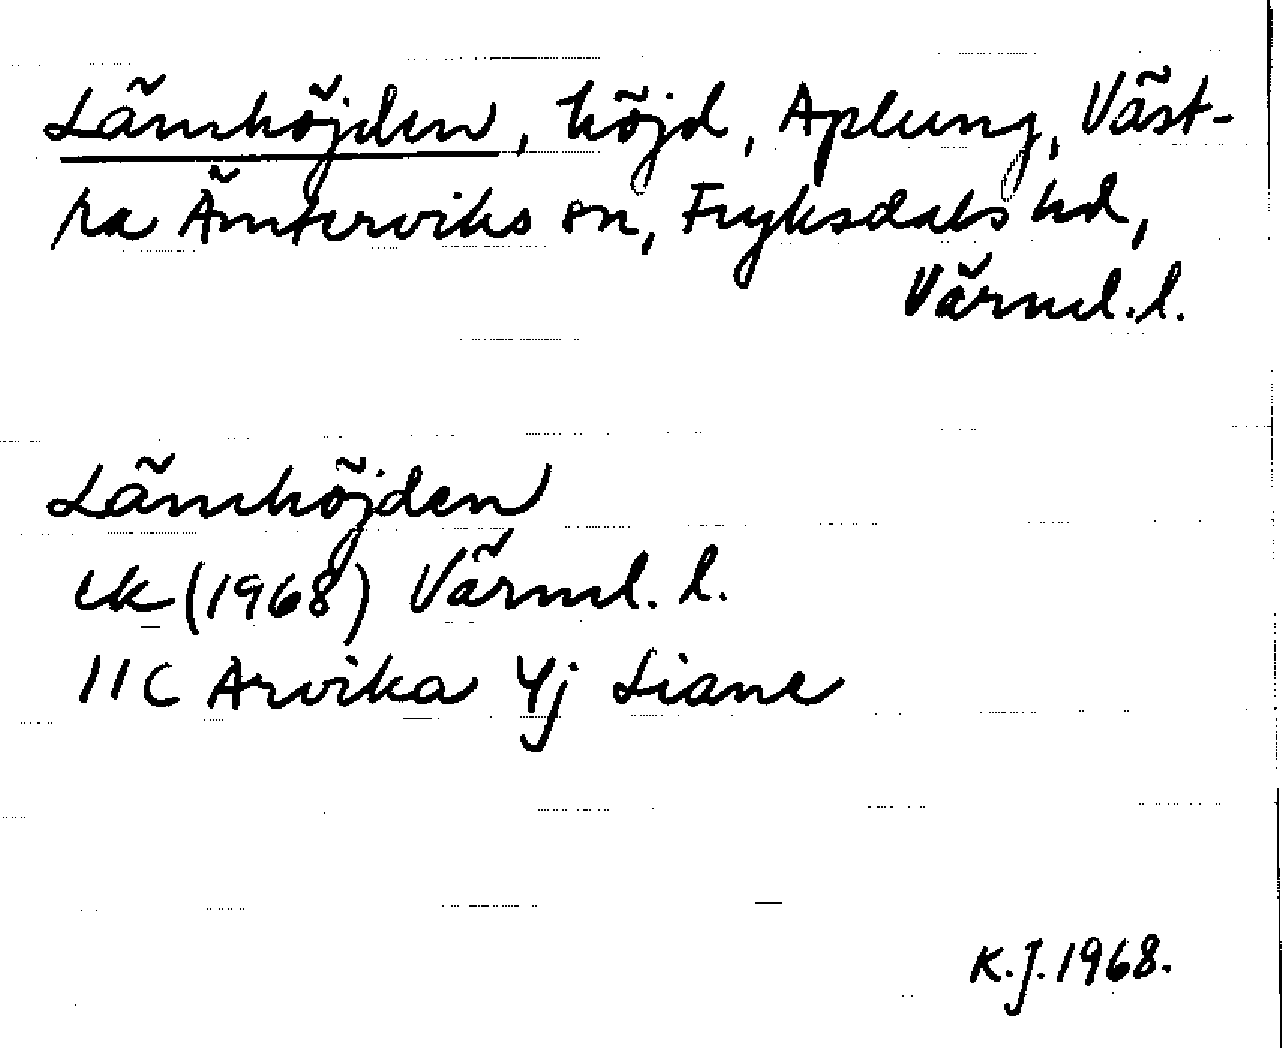 Lämhöjden, höjd, Aplung, Väst-
ra Ämterviks sn, Fryksdals hd,
Värml.l.
Lämhöjden
ek (1968) Värml. l.
11C Arvika 4j Liane
K.J. 1968.